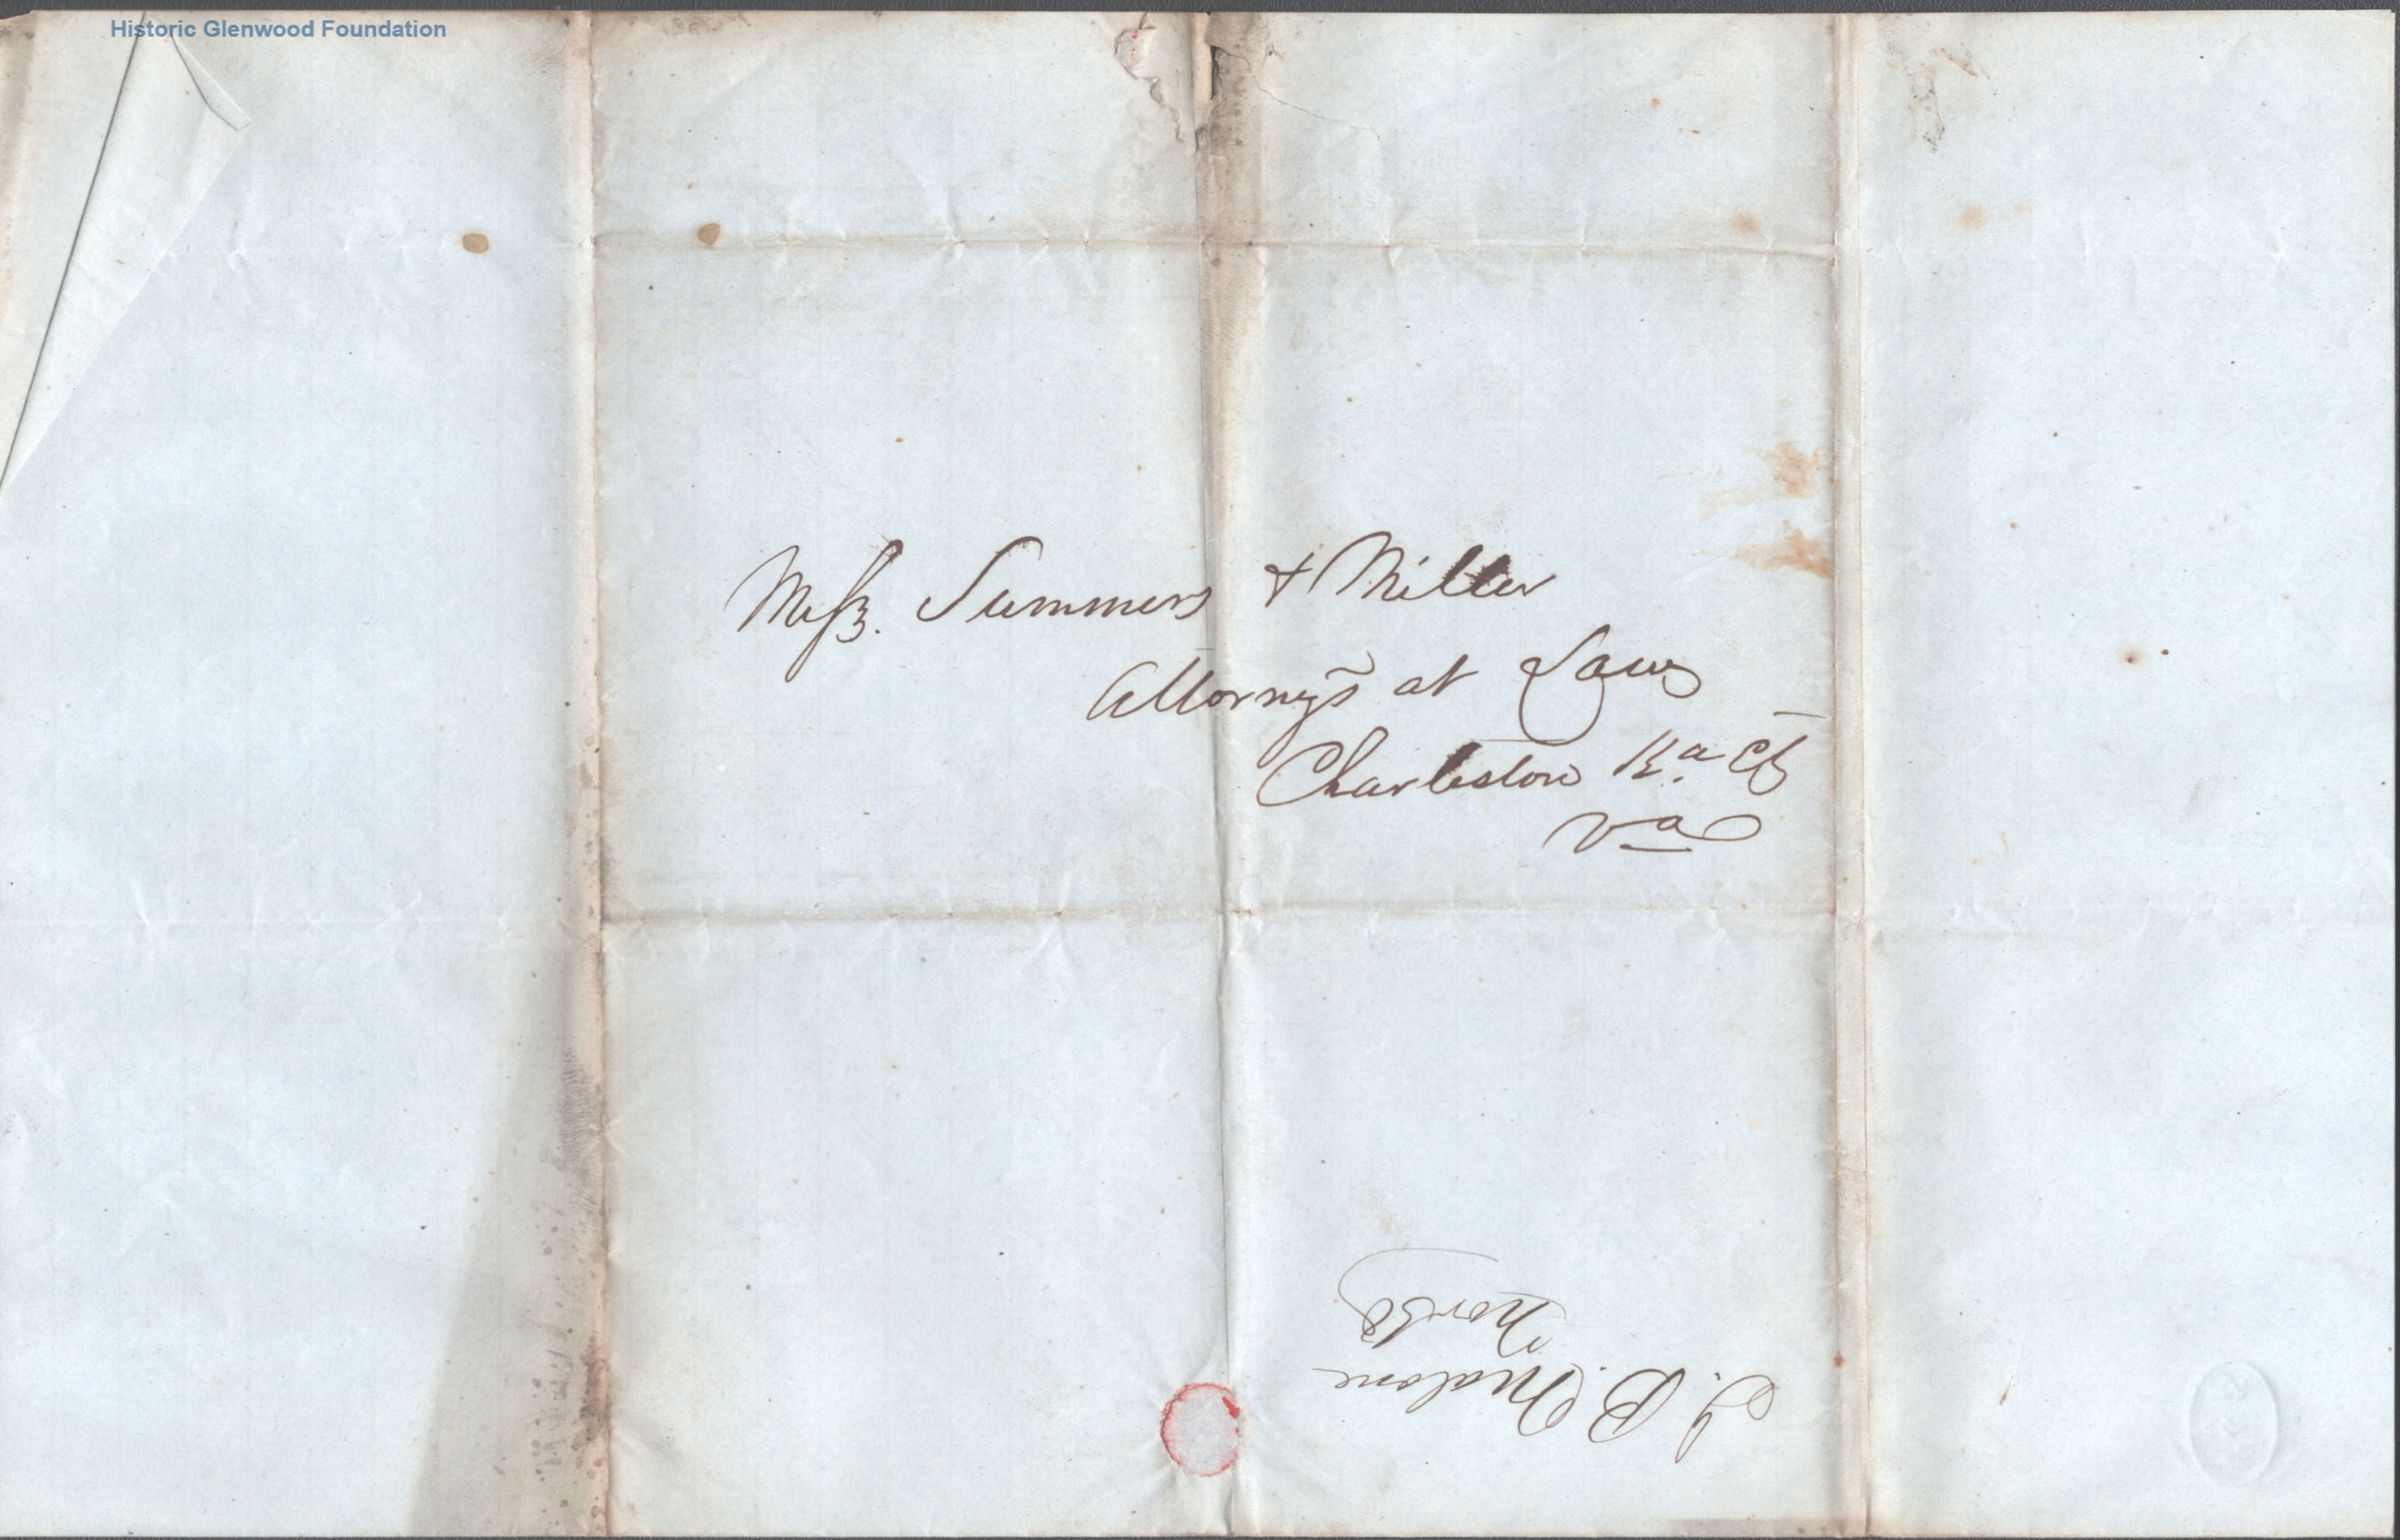 Historic Glenwood Foundation
Messrs. Summers & Miller
Attornys at Law
Charleston Ka. Ct
Va
J. B. Malone